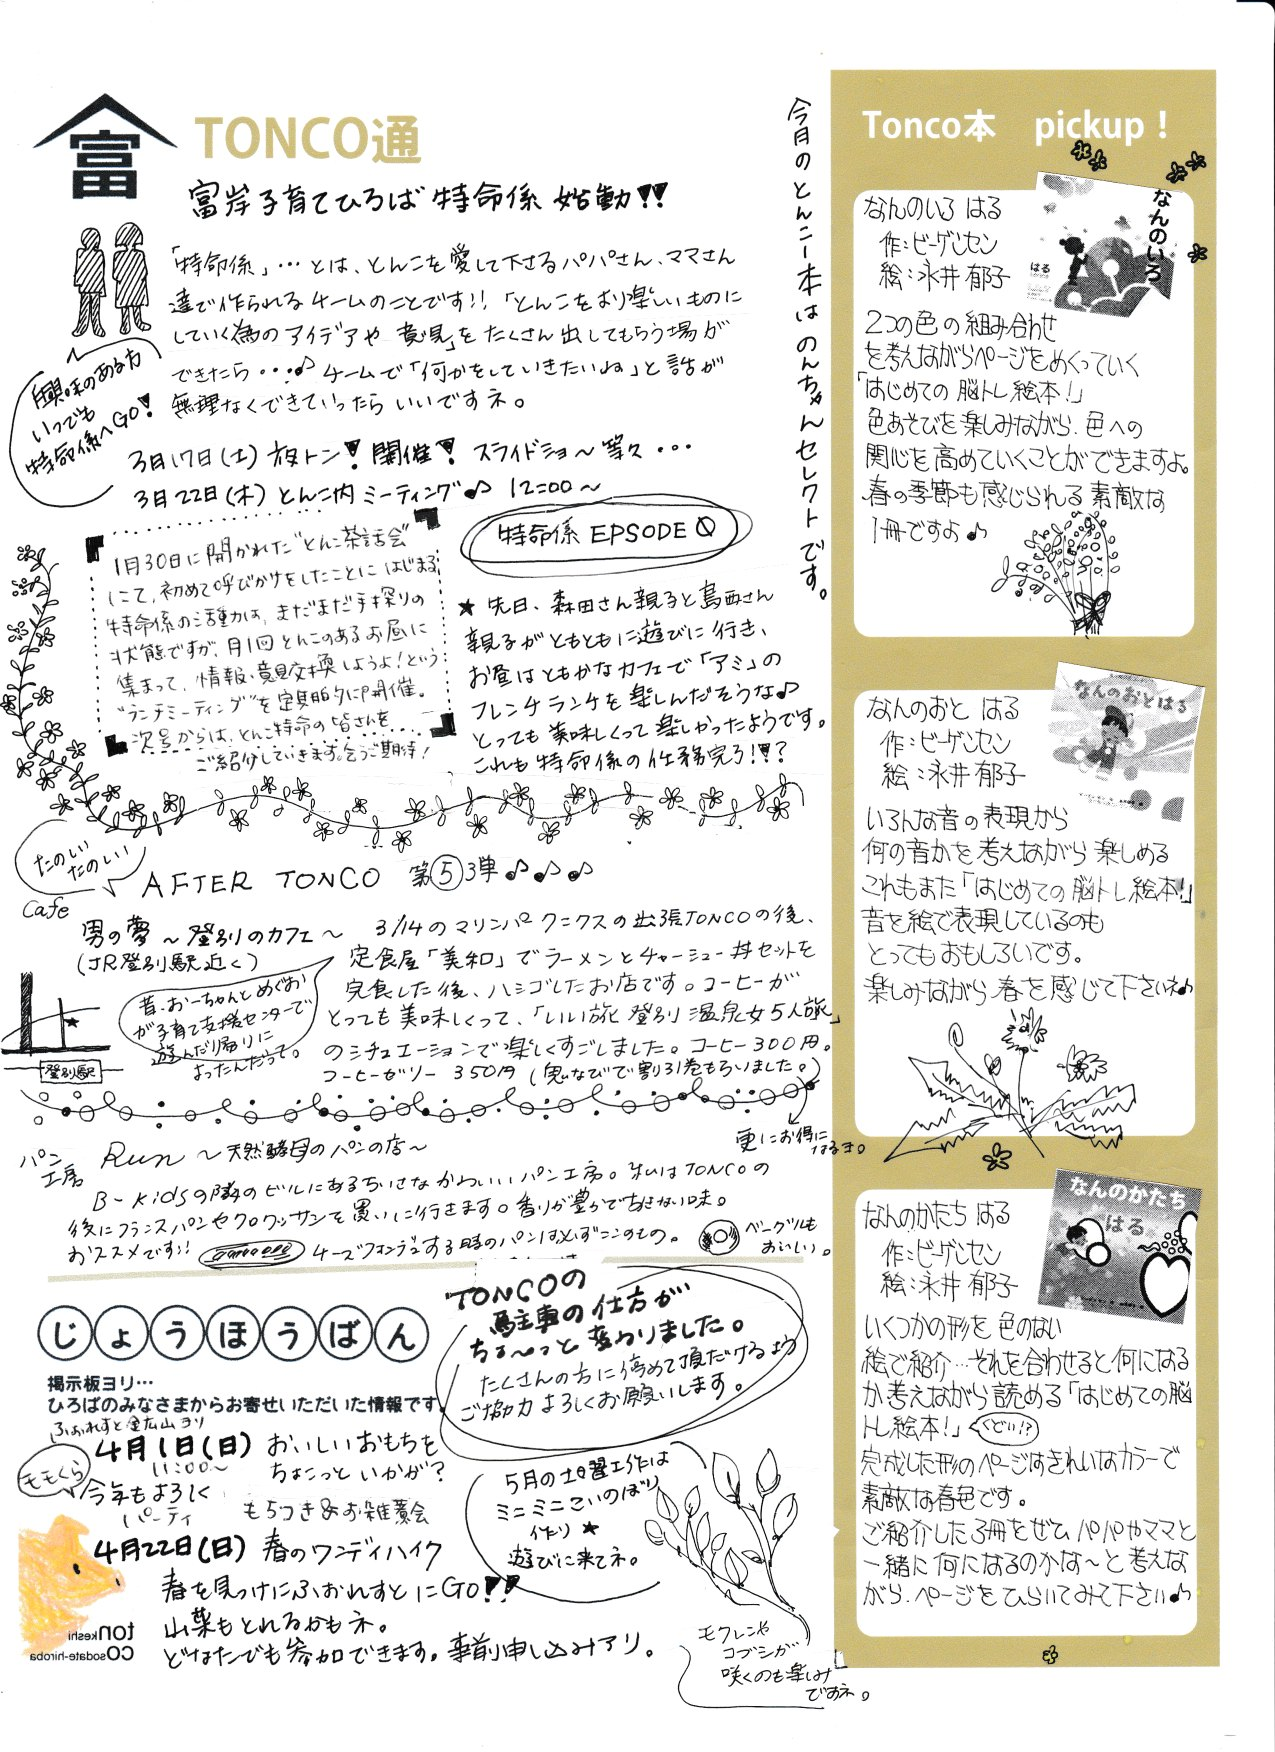 富
TONCO通
富岸子育てひろば 特命係 始動!!
「特命係」…とは、とんこを愛して下さるパパさん、ママさん
達で作られるチームのことです!!「とんこをより楽しいものに
していく為のアイデアや 意見」を たくさん出してもらう場が
できたら…♪ チームで「何かをしていきたいね」と話が
無理なくできていったらいいですネ。
興味のある方
いつでも
特命係へGO!
3月17日(土) 夜トン! 開催! スライドショ〜 等々・・・
3月22日(木) とんこ内 ミーティング♪ 12:00〜
1月30日に開かれた"とんこ茶話会"
にて、初めて呼びかけをしたことに はじまる
特命係の活動は、まだまだ手探りの
状態ですが、月1回とんこのあるお昼に
集まって、情報・意見交換しようよ!という
"ランチミーティング"を定期的に開催。
次号からは、とんこ特命の皆さんを
ご紹介していきます。乞うご期待!
特命係 EPSODE 0
★ 先日、森田さん親子と葛西さん
親子がともともに遊びに行き、
お昼はともかなカフェで「アミ」の
フレンチランチを楽しんだそうな♪
とっても美味しくって楽しかったようです。
これも特命係の任務完了!!?
たのしい
たのしい!
AFTER TONCO 第⑤3弾♪♪♪
Cafe
男の夢 〜登別のカフェ〜
(JR登別駅近く)
登別駅
昔、おーちゃんとめぐお
が子育て支援センターで
遊んだ帰りに
よったんだって。
3/14のマリンパークニクスの出張TONCOの後、
定食屋「美和」でラーメンとチャーシュー丼セットを
完食した後、ハシゴしたお店です。コーヒーが
とっても美味しくって、「いい旅 登別 温泉女5人旅」
のシチュエーションで楽しくすごしました。コーヒー300円。
コーヒーゼリー 350円 (鬼なびで割引巻もらいました。)
更にお得に
なるヨ。
パン
工房
Run 〜天然酵母のパンの店〜
B-Kidsの隣のビルにあるちいさなかわいいパン工房。私はTONCOの
後にフランスパンやクロワッサンを買いに行きます。香りが豊かであきない味。
おススメです!! チーズフォンデュする時のパンは必ずここのもの。
ベーグルも
おいしい。
じょうほうばん
掲示板ヨリ…
ひろばのみなさまからお寄せいただいた情報です
ふぉれすと金広山ヨリ
4月1日(日) おいしいおもちを
11:00〜 ちょこっといかが?
ももくら
今年もよろしく
パーティ もちつき&お雑煮会
4月22日(日) 春のワンディハイク
春を見つけにふぉれすとにGO!!
山菜もとれるかもネ。
どなたでも参加できます。事前申し込みアリ。
tonkeshi
COsodate-hiroba
TONCOの
駐車の仕方が
ちょ〜っと変わりました。
たくさんの方に停めて頂だけるよう
ご協力よろしくお願いします。
5月の土曜工作は
ミニミニこいのぼり
作り★
遊びに来てネ。
モクレンや
コブシが
咲くのも楽しみ
ですネ。
今月のとんこ本はのんちゃんセレクトです。
Tonco本 pickup!
なんのいろ はる
作:ビーゲンセン
絵:永井 郁子
なんのいろ
はる
2つの色の組み合わせ
を考えながらページをめくっていく
「はじめての脳トレ絵本!」
色あそびを楽しみながら、色への
関心を高めていくことができますよ。
春の季節も感じられる素敵な
1冊ですよ♪
なんのおと はる
作:ビーゲンセン
絵:永井 郁子
なんのおとはる
いろんな音の表現から
何の音かを考えながら楽しめる
これもまた「はじめての脳トレ絵本!」
音を絵で表現しているのも
とってもおもしろいです。
楽しみながら春を感じて下さいネ♪
なんのかたち はる
作:ビーゲンセン
絵:永井 郁子
なんのかたち
はる
いくつかの形を 色のない
絵で紹介…それを合わせると何になる
か考えながら読める「はじめての脳
トレ絵本!」(くどい!?)
完成した形のページはきれいなカラーで
素敵な春色です。
ご紹介した3冊をぜひパパやママと
一緒に何になるのかな〜と考えな
がら、ページをひらいてみて下さい♪